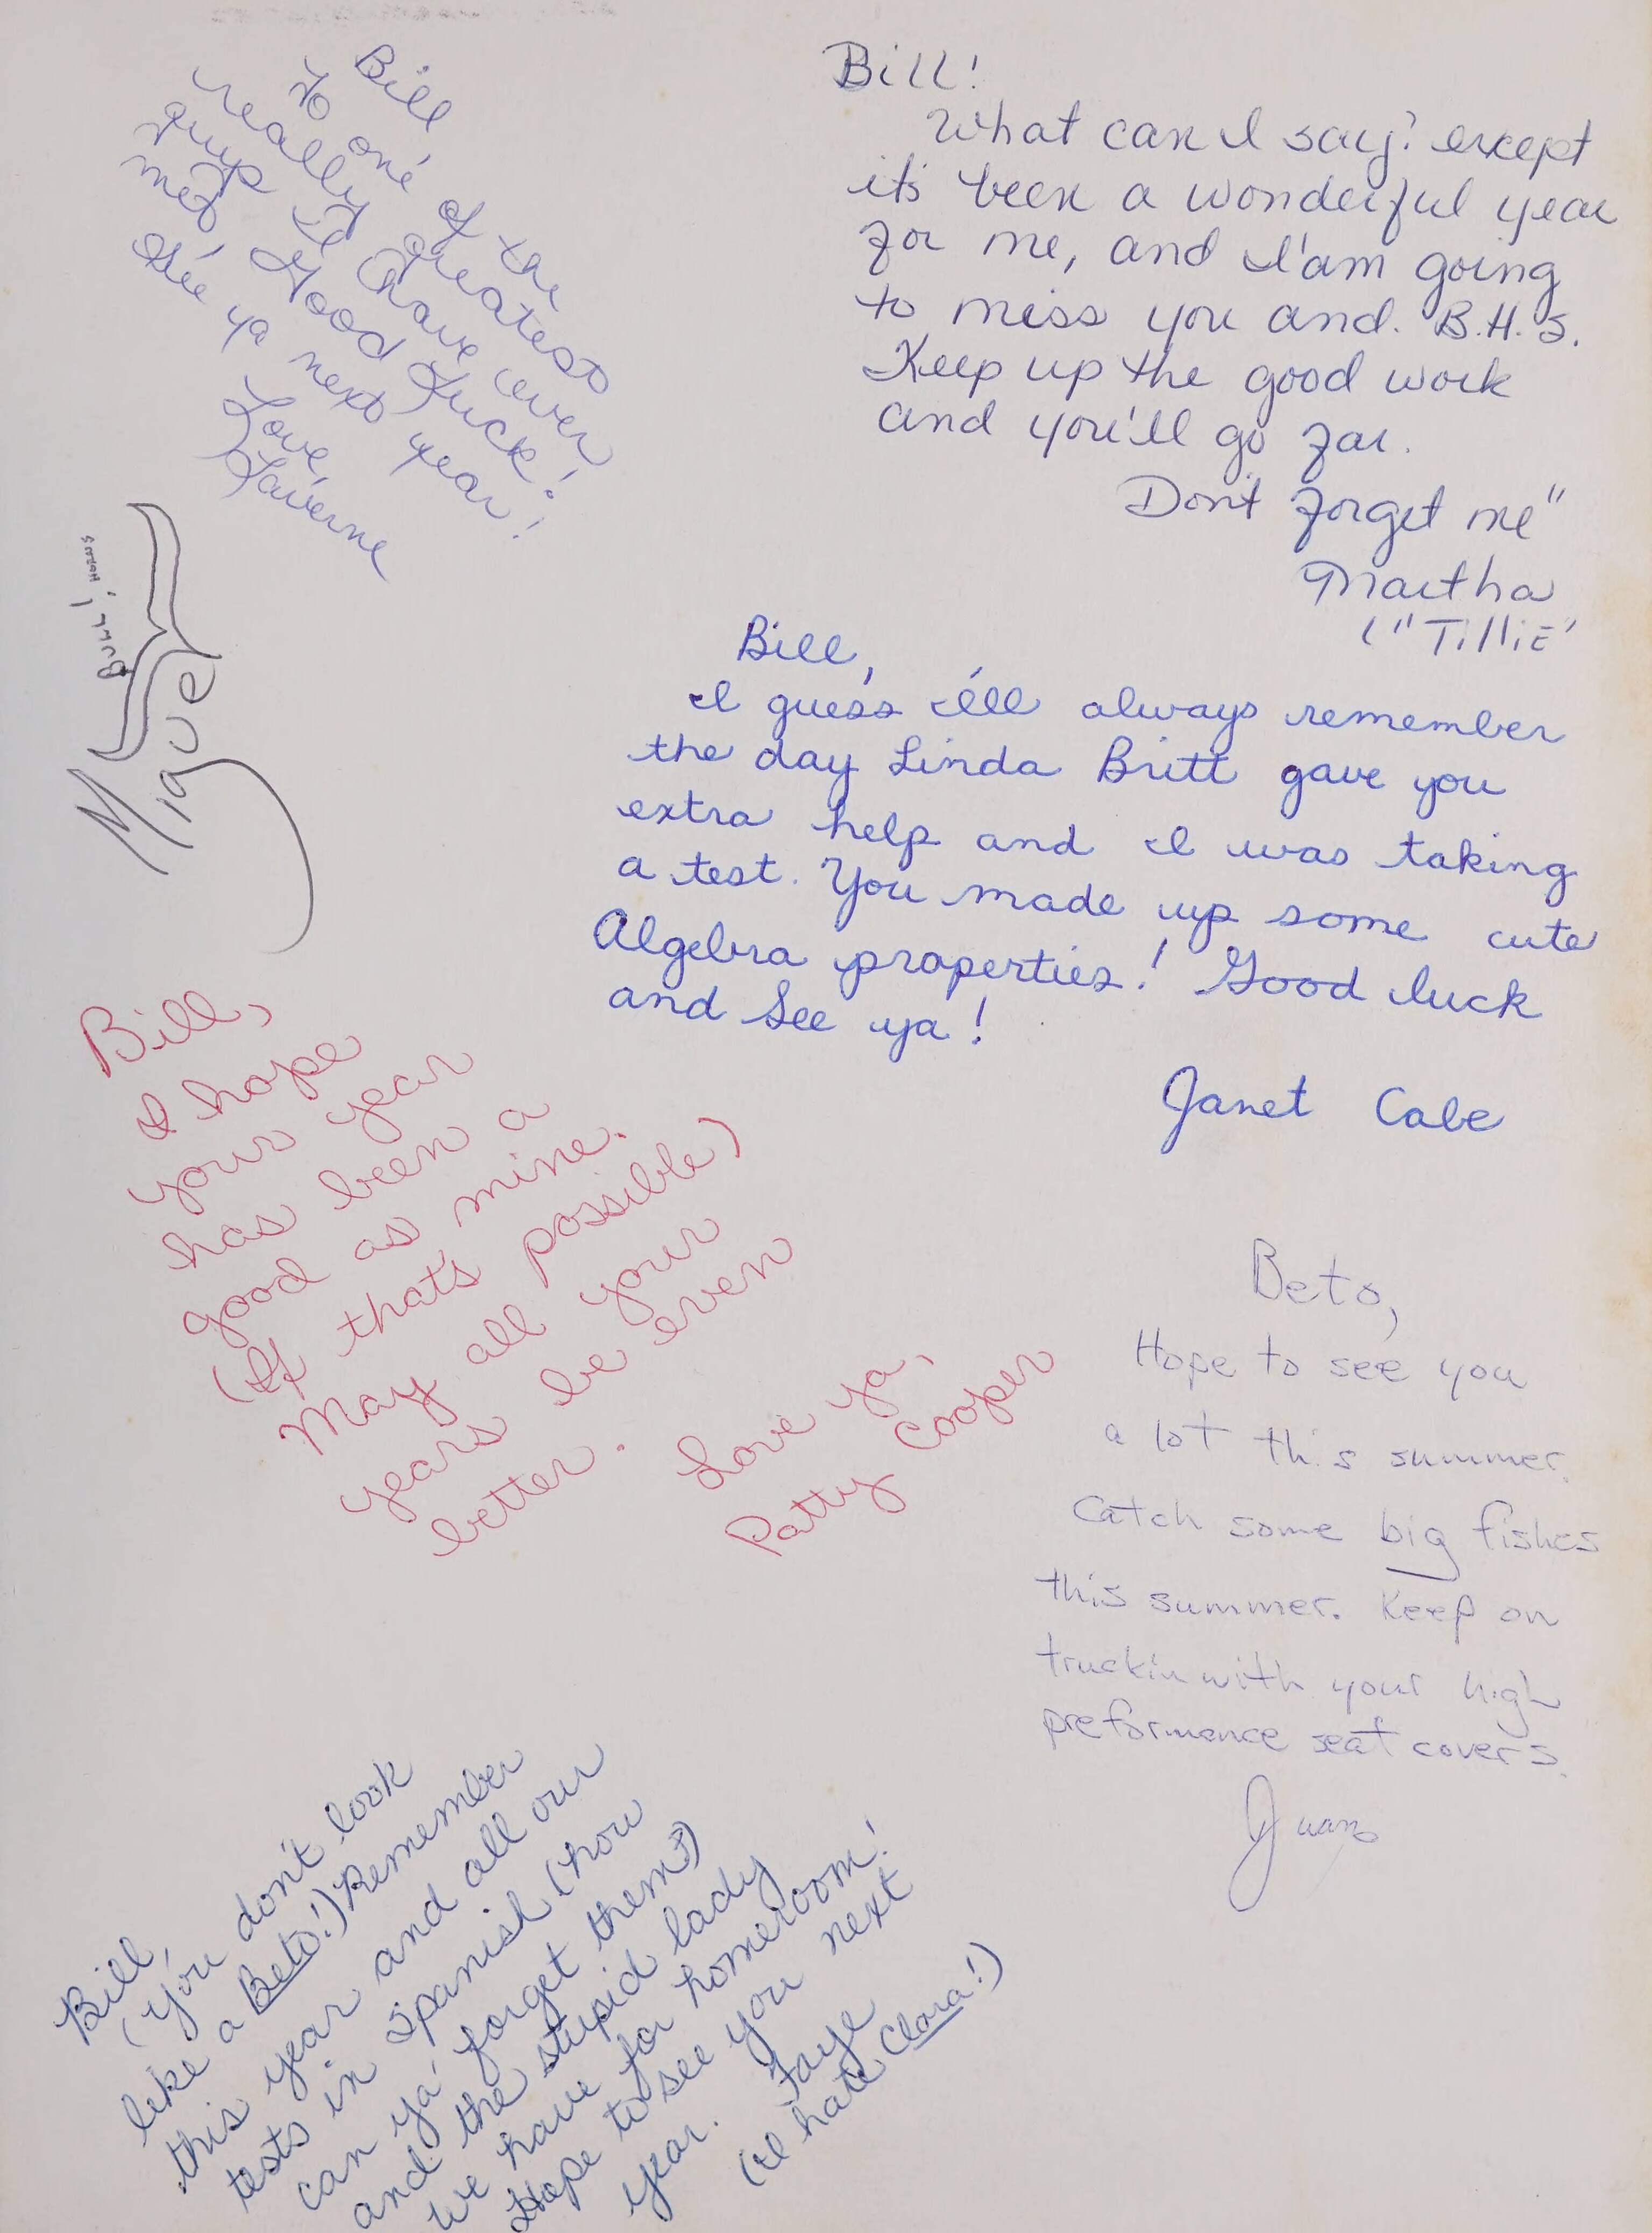 Bill
to one of the
really greatest
guys I have ever
met. Good Luck!
See ya next year!
Love,
Laverne
Bill!
What can I say? except
it's been a wonderful year
for me, and I'am going
to miss you and. B.H.S.
Keep up the good work
and you'll go far.
Don't forget me"
Martha
("Tillie"
Miguel
Bill,
I guess I'll always remember
the day Linda Britt gave you
extra help and I was taking
a test. You made up some cute
Algebra properties! Good luck
and See ya!
Janet Cabe
Bill,
I hope
your year
has been a
good as mine.
(If that's possible)
May all your
years be even
better.
Love ya,
Patty Cooper
Beto,
Hope to see you
a lot this summer.
Catch some big fishes
this summer. Keep on
truckin with your high
preformence seat covers.
Juan
Bill,
(You don't look
like a Beto!) Remember
this year and all our
tests in Spanish (how
can ya' forget them?)
and the stupid lady
we have for homeroom!
Hope to see you next
year. Faye
(I hate Clara!)